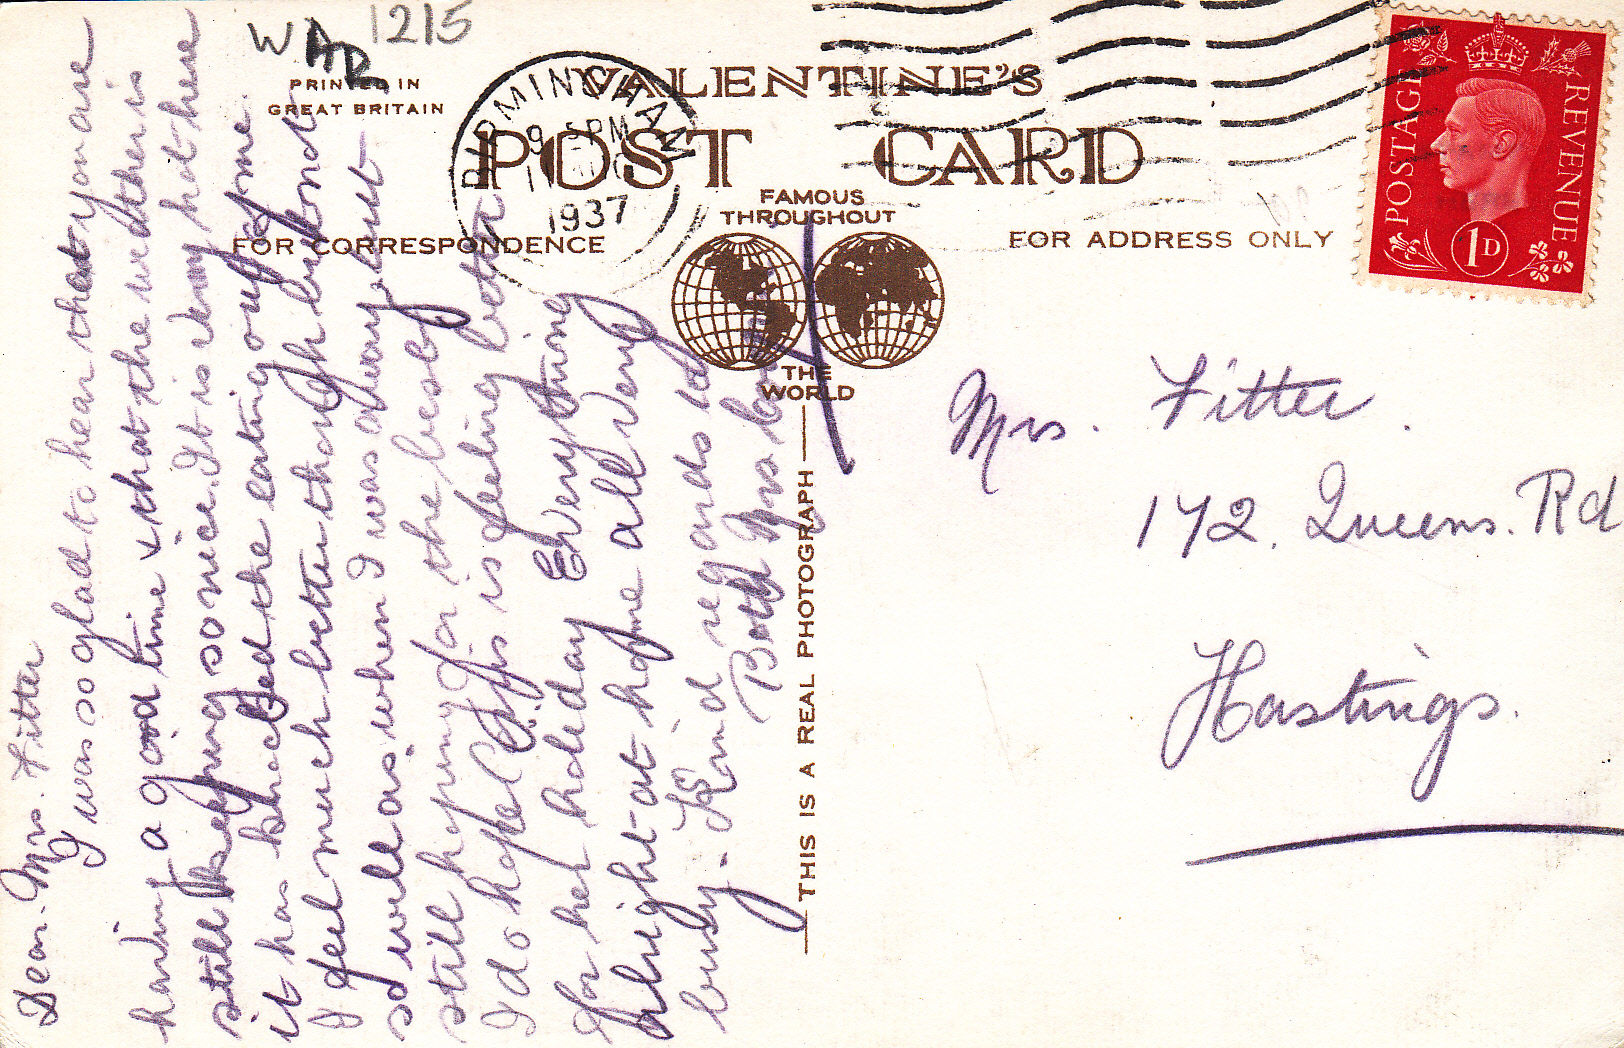 WAR 1215
PRINTED IN
GREAT BRITAIN
VALENTINE'S
POST CARD
FAMOUS
THROUGHOUT
THE
WORLD
FOR CORRESPONDENCE
FOR ADDRESS ONLY
BIRMINGHAM
1937
POSTAGE
REVENUE
1D
THIS IS A REAL PHOTOGRAPH
Dear Mrs. Fitter
I was so glad to hear that you are
having a good time & that the weather is
still keeping so nice. It is very hot here
it has knocked the eating out of me.
I feel much better though but not
so well as when I was away but
still hoping for the best
I do hope is feeling better
for her holiday Everything
alright at home all very
busy. Kind regards to
Both
Mrs. Fitter.
172. Queens. Rd
Hastings.